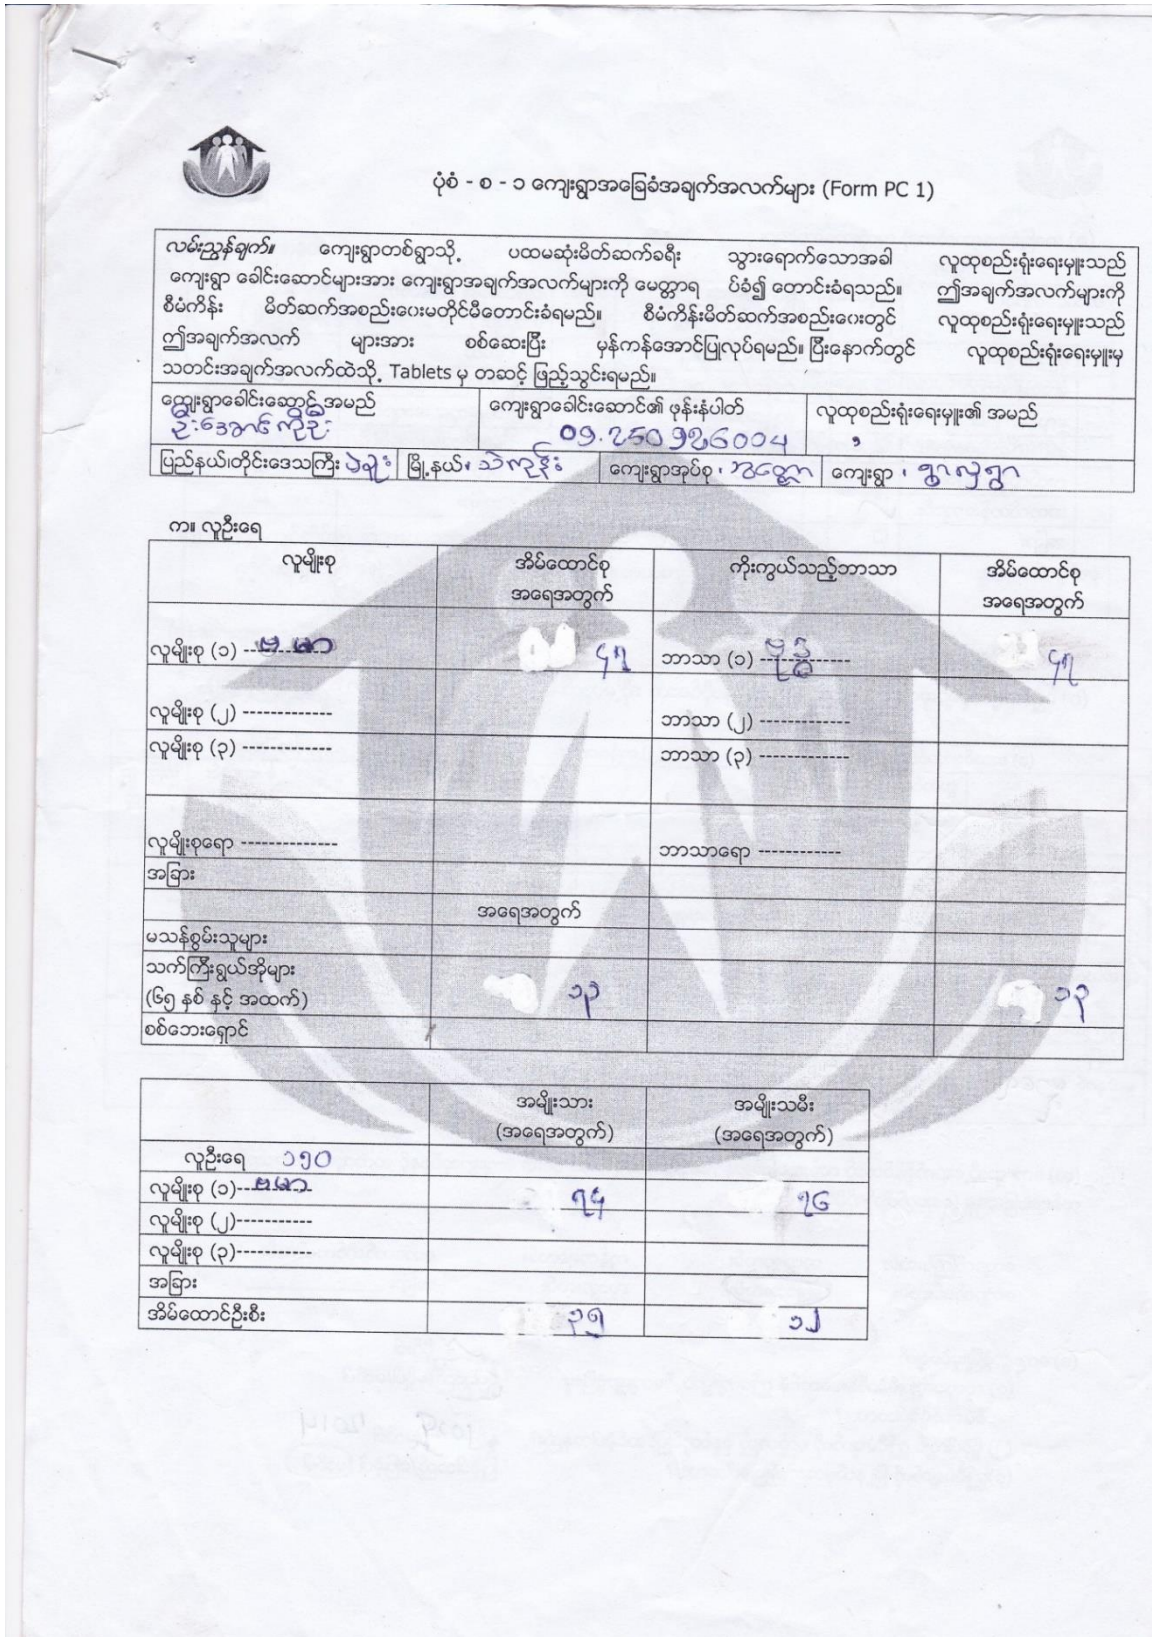 ပုံစံ - စ - ၁ ကျေးရွာအခြေခံအချက်အလက်များ (Form PC 1)
လမ်းညွှန်ချက်။ ကျေးရွာတစ်ရွာသို့ ပထမဆုံးမိတ်ဆက်ခရီး သွားရောက်သောအခါ လူထုစည်းရုံးရေးမှူးသည်
ကျေးရွာ ခေါင်းဆောင်များအား ကျေးရွာအချက်အလက်များကို မေတ္တာရ ပ်ခံ၍ တောင်းခံရသည်။ ဤအချက်အလက်များကို
စီမံကိန်း မိတ်ဆက်အစည်းဝေးမတိုင်မီတောင်းခံရမည်။ စီမံကိန်းမိတ်ဆက်အစည်းဝေးတွင် လူထုစည်းရုံးရေးမှူးသည်
ဤအချက်အလက် များအား စစ်ဆေးပြီး မှန်ကန်အောင်ပြုလုပ်ရမည်။ ပြီးနောက်တွင် လူထုစည်းရုံးရေးမှူးမှ
သတင်းအချက်အလက်ထဲသို့ Tablets မှ တဆင့် ဖြည့်သွင်းရမည်။
ကျေးရွာခေါင်းဆောင် အမည် ကျေးရွာခေါင်းဆောင်၏ ဖုန်းနံပါတ် လူထုစည်းရုံးရေးမှူး၏ အမည်
ဦးအောင်ကိုဦး
ပြည်နယ်၊တိုင်းဒေသကြီး ပဲခူး မြို့နယ်၊ သဲကုန်း ကျေးရွာအုပ်စု ၊ ကျေးရွာ ၊ ရွာလှရွာ
က။ လူဦးရေ
လူမျိုးစု အိမ်ထောင်စု ကိုးကွယ်သည့်ဘာသာ အိမ်ထောင်စု
အရေအတွက် အရေအတွက်
လူမျိုးစု (၁) ဗမာ ၄၇ ဘာသာ (၁) ဗုဒ္ဓ ၄၇
လူမျိုးစု (၂) ------------- ဘာသာ (၂) -------------
လူမျိုးစု (၃) ------------- ဘာသာ (၃) -------------
လူမျိုးစုရော -------------- ဘာသာရော ------------
အခြား
အရေအတွက်
မသန်စွမ်းသူများ
သက်ကြီးရွယ်အိုများ
(၆၅ နှစ် နှင့် အထက်) ၁၃ ၁၃
စစ်ဘေးရှောင်
အမျိုးသား အမျိုးသမီး
(အရေအတွက်) (အရေအတွက်)
လူဦးရေ ၁၅၀
လူမျိုးစု (၁) ဗမာ ၇၄ ၇၆
လူမျိုးစု (၂)-----------
လူမျိုးစု (၃)-----------
အခြား
အိမ်ထောင်ဦးစီး ၃၅ ၁၂